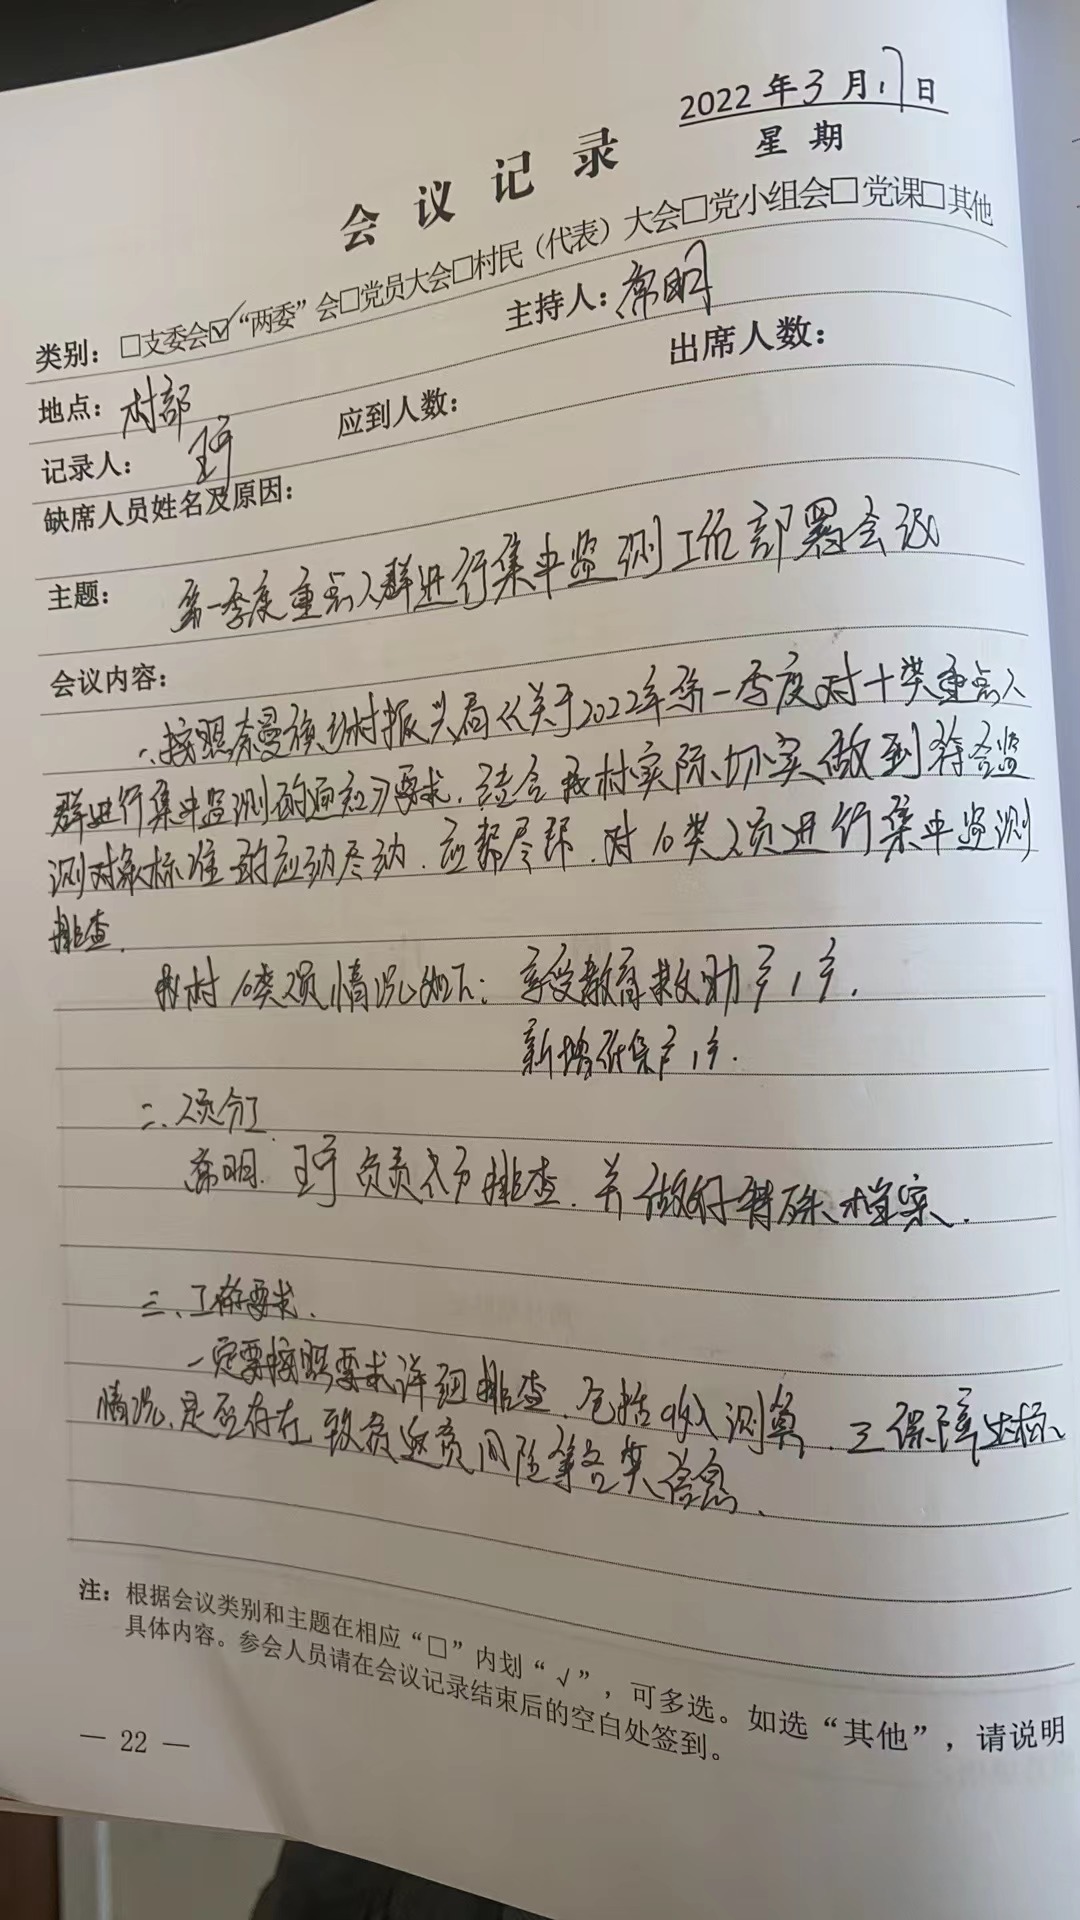 2022年3月17日
星期
会议记录
类别：□支委会☑“两委”会□党员大会□村民（代表）大会□党小组会□党课□其他
地点：村部 主持人：席明
记录人： 应到人数： 出席人数：
缺席人员姓名及原因：
主题：第一季度重点人群进行集中监测工作部署会议
会议内容：
一、按照奈曼旗乡村振兴局《关于2022年第一季度对十类重点人
群进行集中监测的通知》要求，结合我村实际，切实做到符合监
测对象标准的应纳尽纳，应帮尽帮，对10类人员进行集中监测
排查。
我村10类人员情况如下：享受教育救助户1户，
新增低保户1户.
二、人员分工
席明、 负责入户排查，并做好特殊档案.
三、工作要求.
一定要按照要求详细排查，包括收入测算、三保障达标
情况、是否存在致贫返贫风险等各类信息.
注：根据会议类别和主题在相应“□”内划“√”，可多选。如选“其他”，请说明
具体内容。参会人员请在会议记录结束后的空白处签到。
— 22 —